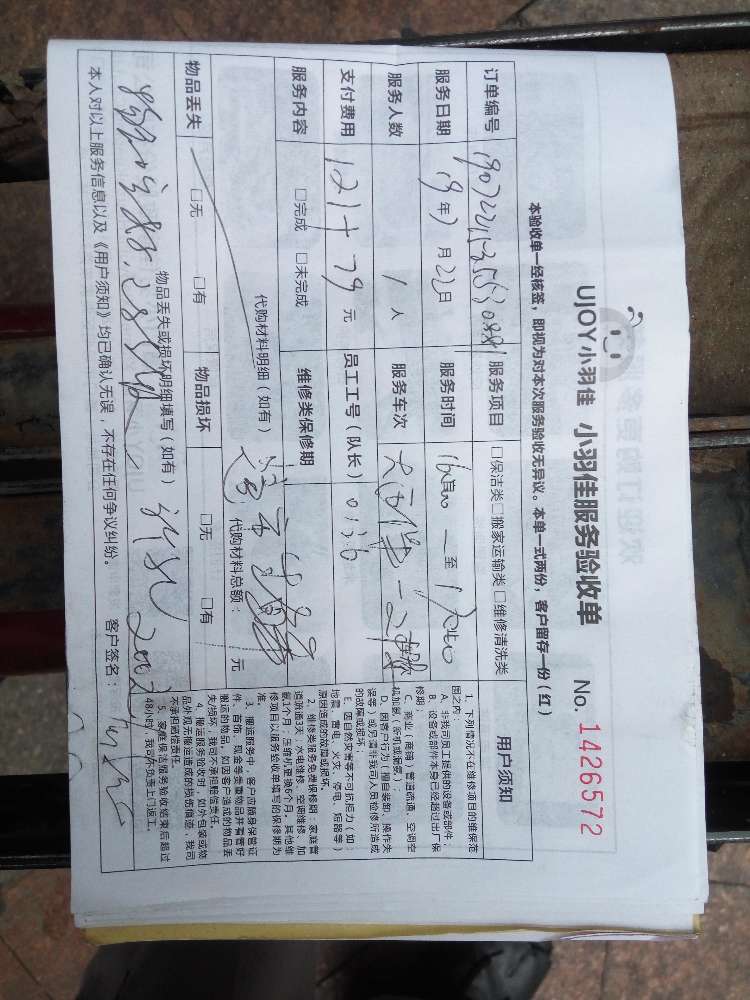 UJOY小羽佳 小羽佳服务验收单 No. 1426572
本验收单一经核签，即视为对本次服务验收无异议。本单一式两份，客户留存一份（红）
订单编号 服务项目 □保洁类□搬家运输类□维修清洗类 用户须知
服务日期 19年7月22日 服务时间 至
服务人数 1人 服务车次
支付费用 121+79元 员工工号（队长） 0136
服务内容 □完成 □未完成 维修类保修期
代购材料明细（如有） 代购材料总额： 元
物品丢失 □无 □有 物品损坏 □无 □有
物品丢失或损坏明细填写（如有）
本人对以上服务信息以及《用户须知》均已确认无误，不存在任何争议纠纷。 客户签名：
1. 下列情况不在维修项目的维保范
围之内：
A. 非我司员工提供的设备或部件；
B. 设备或部件本身已经超过出厂保
修期；
C. 商业（商铺）管道疏通、空调空
机加氟（拆机或漏氟）；
D. 因客户行为（擅自装卸、操作失
误等）或另请非我司人员检修所造成
的故障或损坏；
E. 因自然灾害等不可抗拒力（如：
地震、雷电、火灾、停电、短路等）
原因造成的故障或损坏。
2. 维修类服务免费保修期：家庭管
道疏通3天；水电维修、空调维修、加
氟1个月；压缩机更换6个月。其他维
修项目以服务验收单填写的保修期为
准。
3. 搬运服务中，客户应随身保管证
件、首饰、现金等贵重物品并看管好
搬运的物品，如因客户造成的物品丢
失/损坏，我司不承担赔偿责任。
4. 搬运服务验收时，如外包装或物
品外观无搬运造成的损伤痕迹，我司
不承担赔偿责任。
5. 家庭保洁服务验收结束后超过
48小时，我司不负责上门返工。